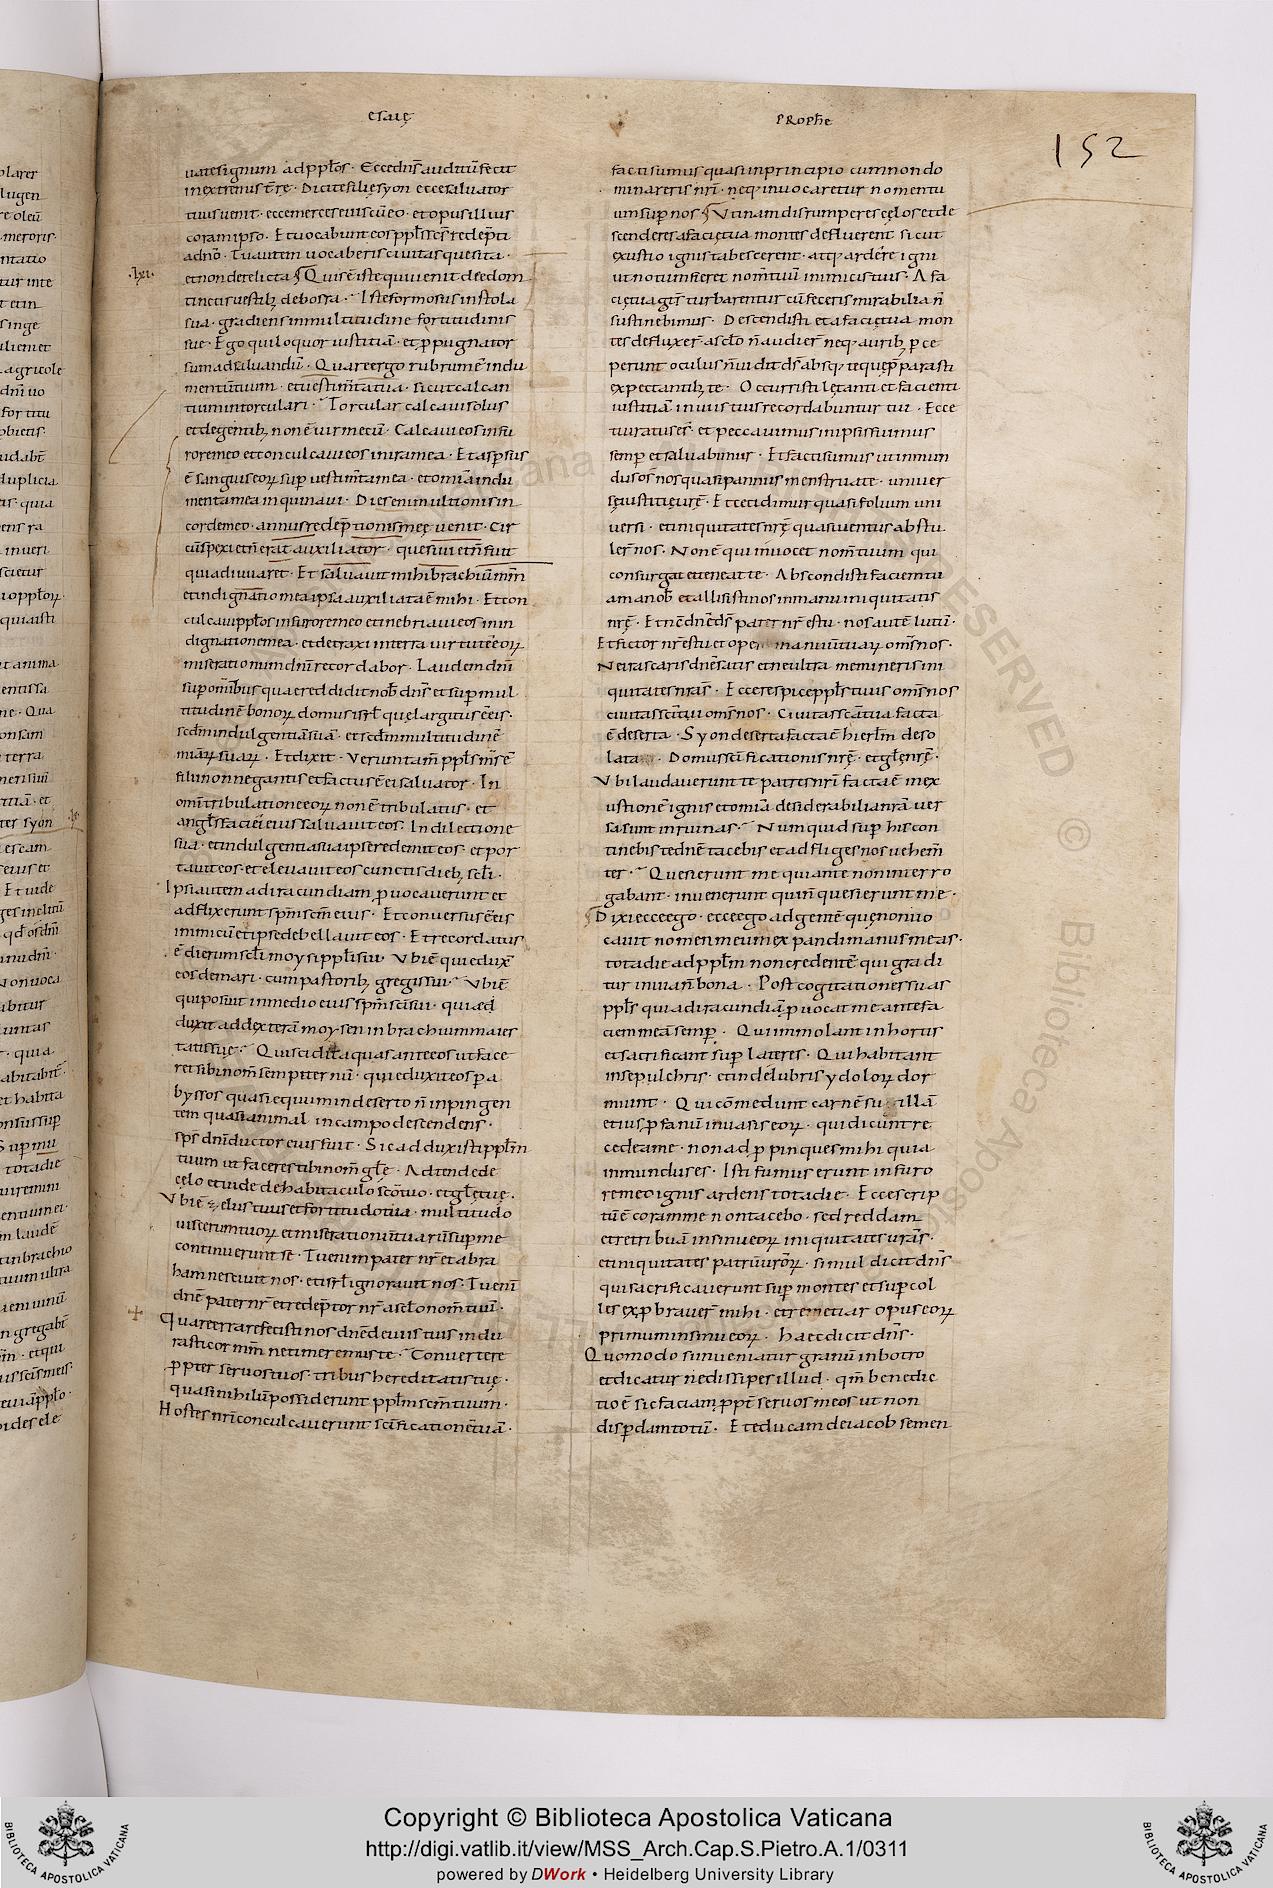 esaię
prophe
152
uate signum ad pplos · Ecce dns auditū fecit
in extremis tre · Dicite filię syon ecce saluator
tuus uenit · ecce merces eius cū eo · et opus illius
coram ipso · Et uocabunt eos ppls scs redepti
a dno · Tu autem uocaberis ciuitas quesita ·
·lxi·
et non derelicta Quis ē iste qui uenit de edom
tinctis uestib; de bosra · Iste formosus in stola
sua · gradiens in multitudine fortitudinis
sue · Ego qui loquor iustitiam · et ppugnator
sum ad saluandū · Quare ergo rubrum ē indu
mentū tuum · et uestimta tua · sicut calcan
tium in torculari · Torcular calcaui solus
et de gentib; non ē uir mecū · Calcaui eos in fu
rore meo et conculcaui eos in ira mea · Et aspsus
ē sanguis eoꝝ sup uestimta mea · et omia indu
menta mea inquinaui · Dies enim ultionis in
corde meo · annus redeptionis meę uenit · Cir
cūspexi et n erat auxiliator · quesiui et n fuit
qui adiuuaret · Et saluauit mihi brachiū mm
et indignatio mea ipsa auxiliata ē mihi · Et con
culcaui pplos in furore meo et inebriaui eos in in
dignatione mea · et detraxi in terra uirtutē eoꝝ
miserationum dni recordabor · Laudem dni
sup omibus quae reddidit nob dns et sup mul
titudinē bonoꝝ domus isrl quę largitus ē eis ·
scdm indulgentiā suā · et scdm multitudinē
miaꝝ suaꝝ · Et dixit · Verumtam ppls ms ē
filii non negantis et factus ē ei saluator · In
omi tribulatione eoꝝ non ē tribulatus · et
angls faciei eius saluauit eos · In dilectione
sua · et indulgentia sua ipse redemit eos · et por
tauit eos · et eleuauit eos cunctis dieb; scli ·
Ipsi autem ad iracundiam puocauerunt et
adflixerunt spm scm eius · Et conuersus ē eis
inimicū et ipse debellauit eos · Et recordatus
ē dierum scli moysi ppli sui · Vbi ē qui eduxit
eos de mari · cum pastorib; gregis sui · Vbi ē
qui posuit in medio eius spm sci sui · qui æd
duxit ad dexterā moysen in brachium maies
tatis suę · Qui scidit aquas ante eos ut face
ret sibi nom sempiternū · qui eduxit eos p a
byssos quasi equum in deserto n inpingen
tem quasi animal in campo descendens ·
sps dni ductor eius fuit · Sic adduxisti pplm
tuum ut faceres tibi nom glę · Adtende de
cęlo et uide de habitaculo sco tuo · et glę tuę ·
Vbi ē zelus tuus et fortitudo tua · multitudo
uiscerum tuoꝝ et miserationū tuarū sup me
continuerunt se · Tu enim pater nr et abra
ham nesciuit nos · et isrl ignorauit nos · Tu eni
dne pater nr et redeptor nr a sclo nom tuū ·
Quare errare fecisti nos dne de uiis tuis indu
rasti cor nrm ne timeremus te · Conuertere
ppter seruos tuos · tribus hereditatis tuę ·
quasi nihilū possiderunt pplm scm tuum ·
Hostes nri conculcauerunt scificationē tuā ·
facti sumus quasi in principio cum non do
minareris nri · neq; inuocaretur nomen tu
um sup nos Vtinam disrumperes cęlos et de
scenderes a facie tua montes defluerent sicut
exustio ignis tabescerent · atq; arderet igni
ut notum fieret nom tuū inimicis tuis · A fa
cię tua gtes turbarentur cū feceris mirabilia n
sustinebimus · Descendisti et a facię tua mon
tes defluxer a sclo n audier neq; aurib; pce
perunt oculus n uidit ds absq; te quę pparasti
expectantib; te · Occurristi lętanti et facienti
iustitiā in uiis tuis recordabuntur tui · Ecce
tu iratus es · et peccauimus in ipsis fuimus
semp et saluabimur · Et facti sumus ut inmun
dus os nos quasi pannus menstruate · uniuer
sę iustitię nrę · Et cecidimus quasi folium uni
uersi · et iniquitates nrę quasi uentus abstu
ler nos · Non ē qui inuocet nom tuum qui
consurgat et teneat te · Abscondisti faciem tu
am a nob et allisisti nos in manu iniquitatis
nrę · Et n dne ds pater nr es tu · nos autē lutū ·
Et fictor nr es tu et opera manuū tuaꝝ oms nos ·
Ne irascaris dne satis et ne ultra memineris ini
quitatis nrae · Ecce respice ppls tuus oms nos
ciuitas sci tui oms nos · Ciuitas sca tua facta
ē deserta · Syon deserta facta ē hierlm deso
lata · Domus scificationis nrę · et glę nrę ·
Vbi laudauerunt te patres nri facta ē in ex
ustionē ignis et omia desiderabilia nra uer
sa sunt in ruinas · Numquid sup his con
tinebis te dne tacebis et adfliges nos uehem
ter · Quesierunt me qui ante non inter ro
gabant · inuenerunt qui n quesierunt me ·
Dixi ecce ego · ecce ego ad gentē quę non inuo
cauit nomen meum expandi manus meas ·
tota die ad pplm non credentē qui gradi
tur in uia n bona · Post cogitationes suas
ppls qui ad iracundiā puocat me ante fa
ciem meā semp · Qui immolant in hortis
et sacrificant sup lateres · Qui habitant
in sepulchris · et in delubris ydoloꝝ dor
miunt · Qui cōmedunt carnē suillā
et ius pfanū in uasis eoꝝ · qui dicunt re
cede a me · non adppinques mihi quia
inmundus es · Isti fumus erunt in furo
re meo ignis ardens tota die · Ecce scrip
tū ē coram me non tacebo · sed reddam
et retribuā in sinu eoꝝ iniquitates uras ·
et iniquitates patrū uroꝝ · simul dicit dns
qui sacrificauerunt sup montes et sup col
les expbrauer mihi · et remetiar opus eoꝝ
primum in sinu eoꝝ · haec dicit dns ·
Quomodo si inueniatur granū in botro
et dicatur ne dissipes illud · qm benedic
tio ē sic faciam ppt seruos meos ut non
dispdam totū · Et educam de iacob semen
Copyright © Biblioteca Apostolica Vaticana
http://digi.vatlib.it/view/MSS_Arch.Cap.S.Pietro.A.1/0311
powered by DWork • Heidelberg University Library